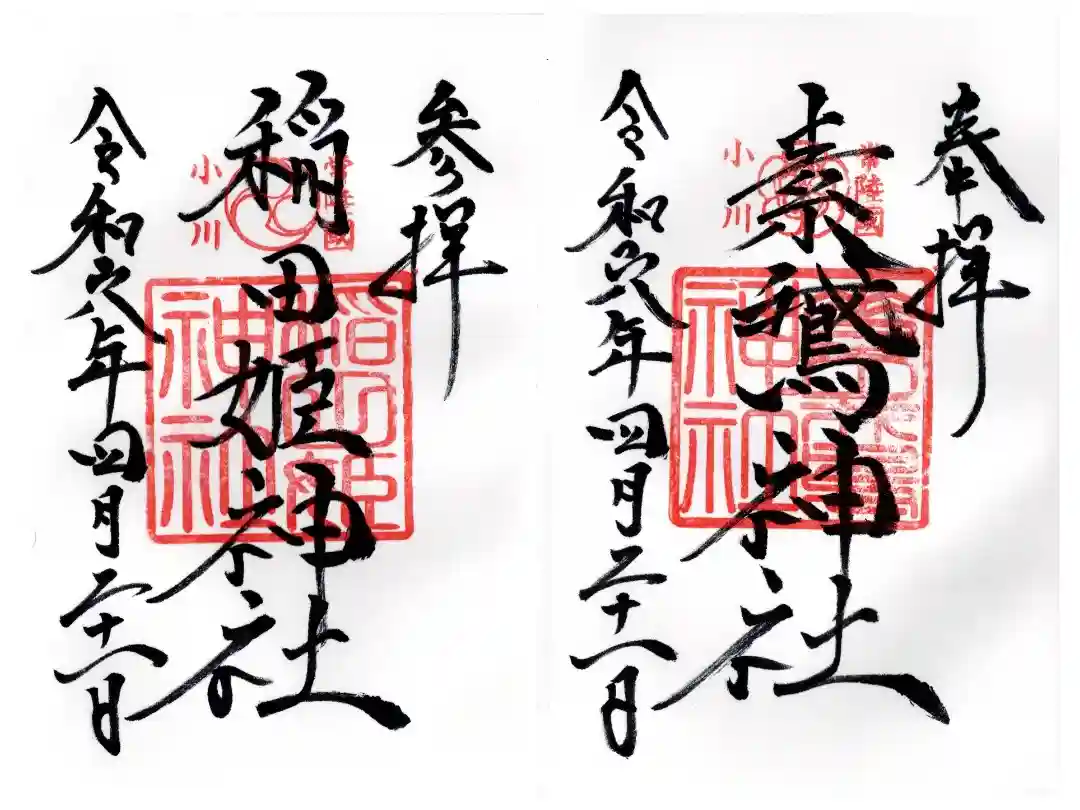 奉拝
常陸國
素鵞神社
小川
素鵞
神社
令和六年四月二十一日
参拝
常陸國
稲田姫神社
小川
稲田姫
神社
令和六年四月二十一日